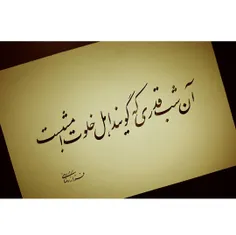 آن شب قدری که گویند اهل خلوت امشبست